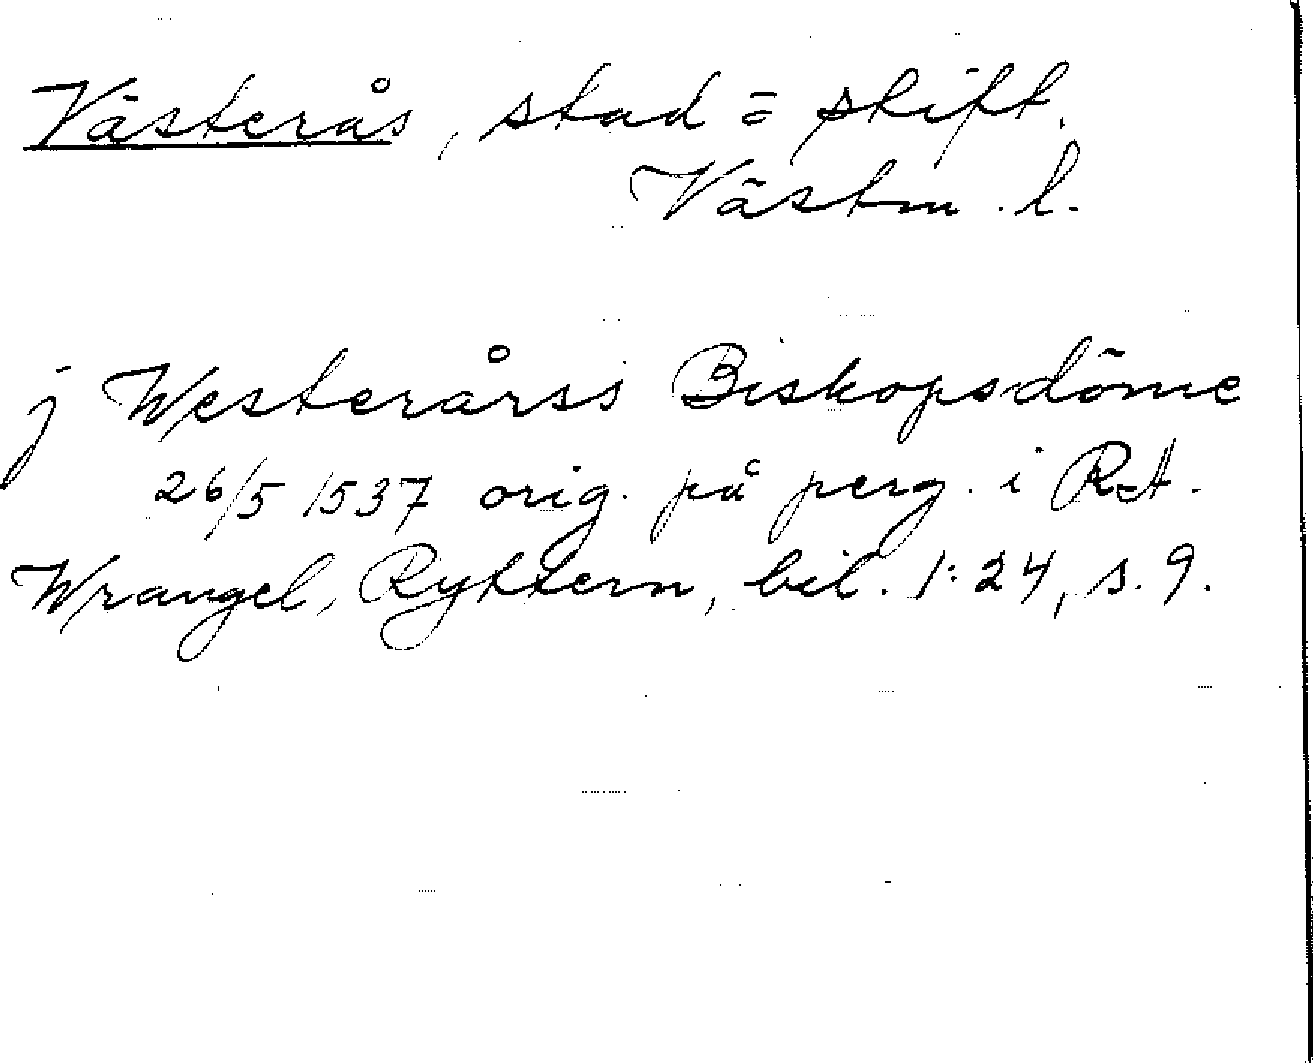 Västerås, stad = skift.
Västm. l.
j Westerårss Biskopsdöme
26/5 1537 orig. på perg. i RA.
Wrangel, Ryttern, bil. 1:24, s. 9.